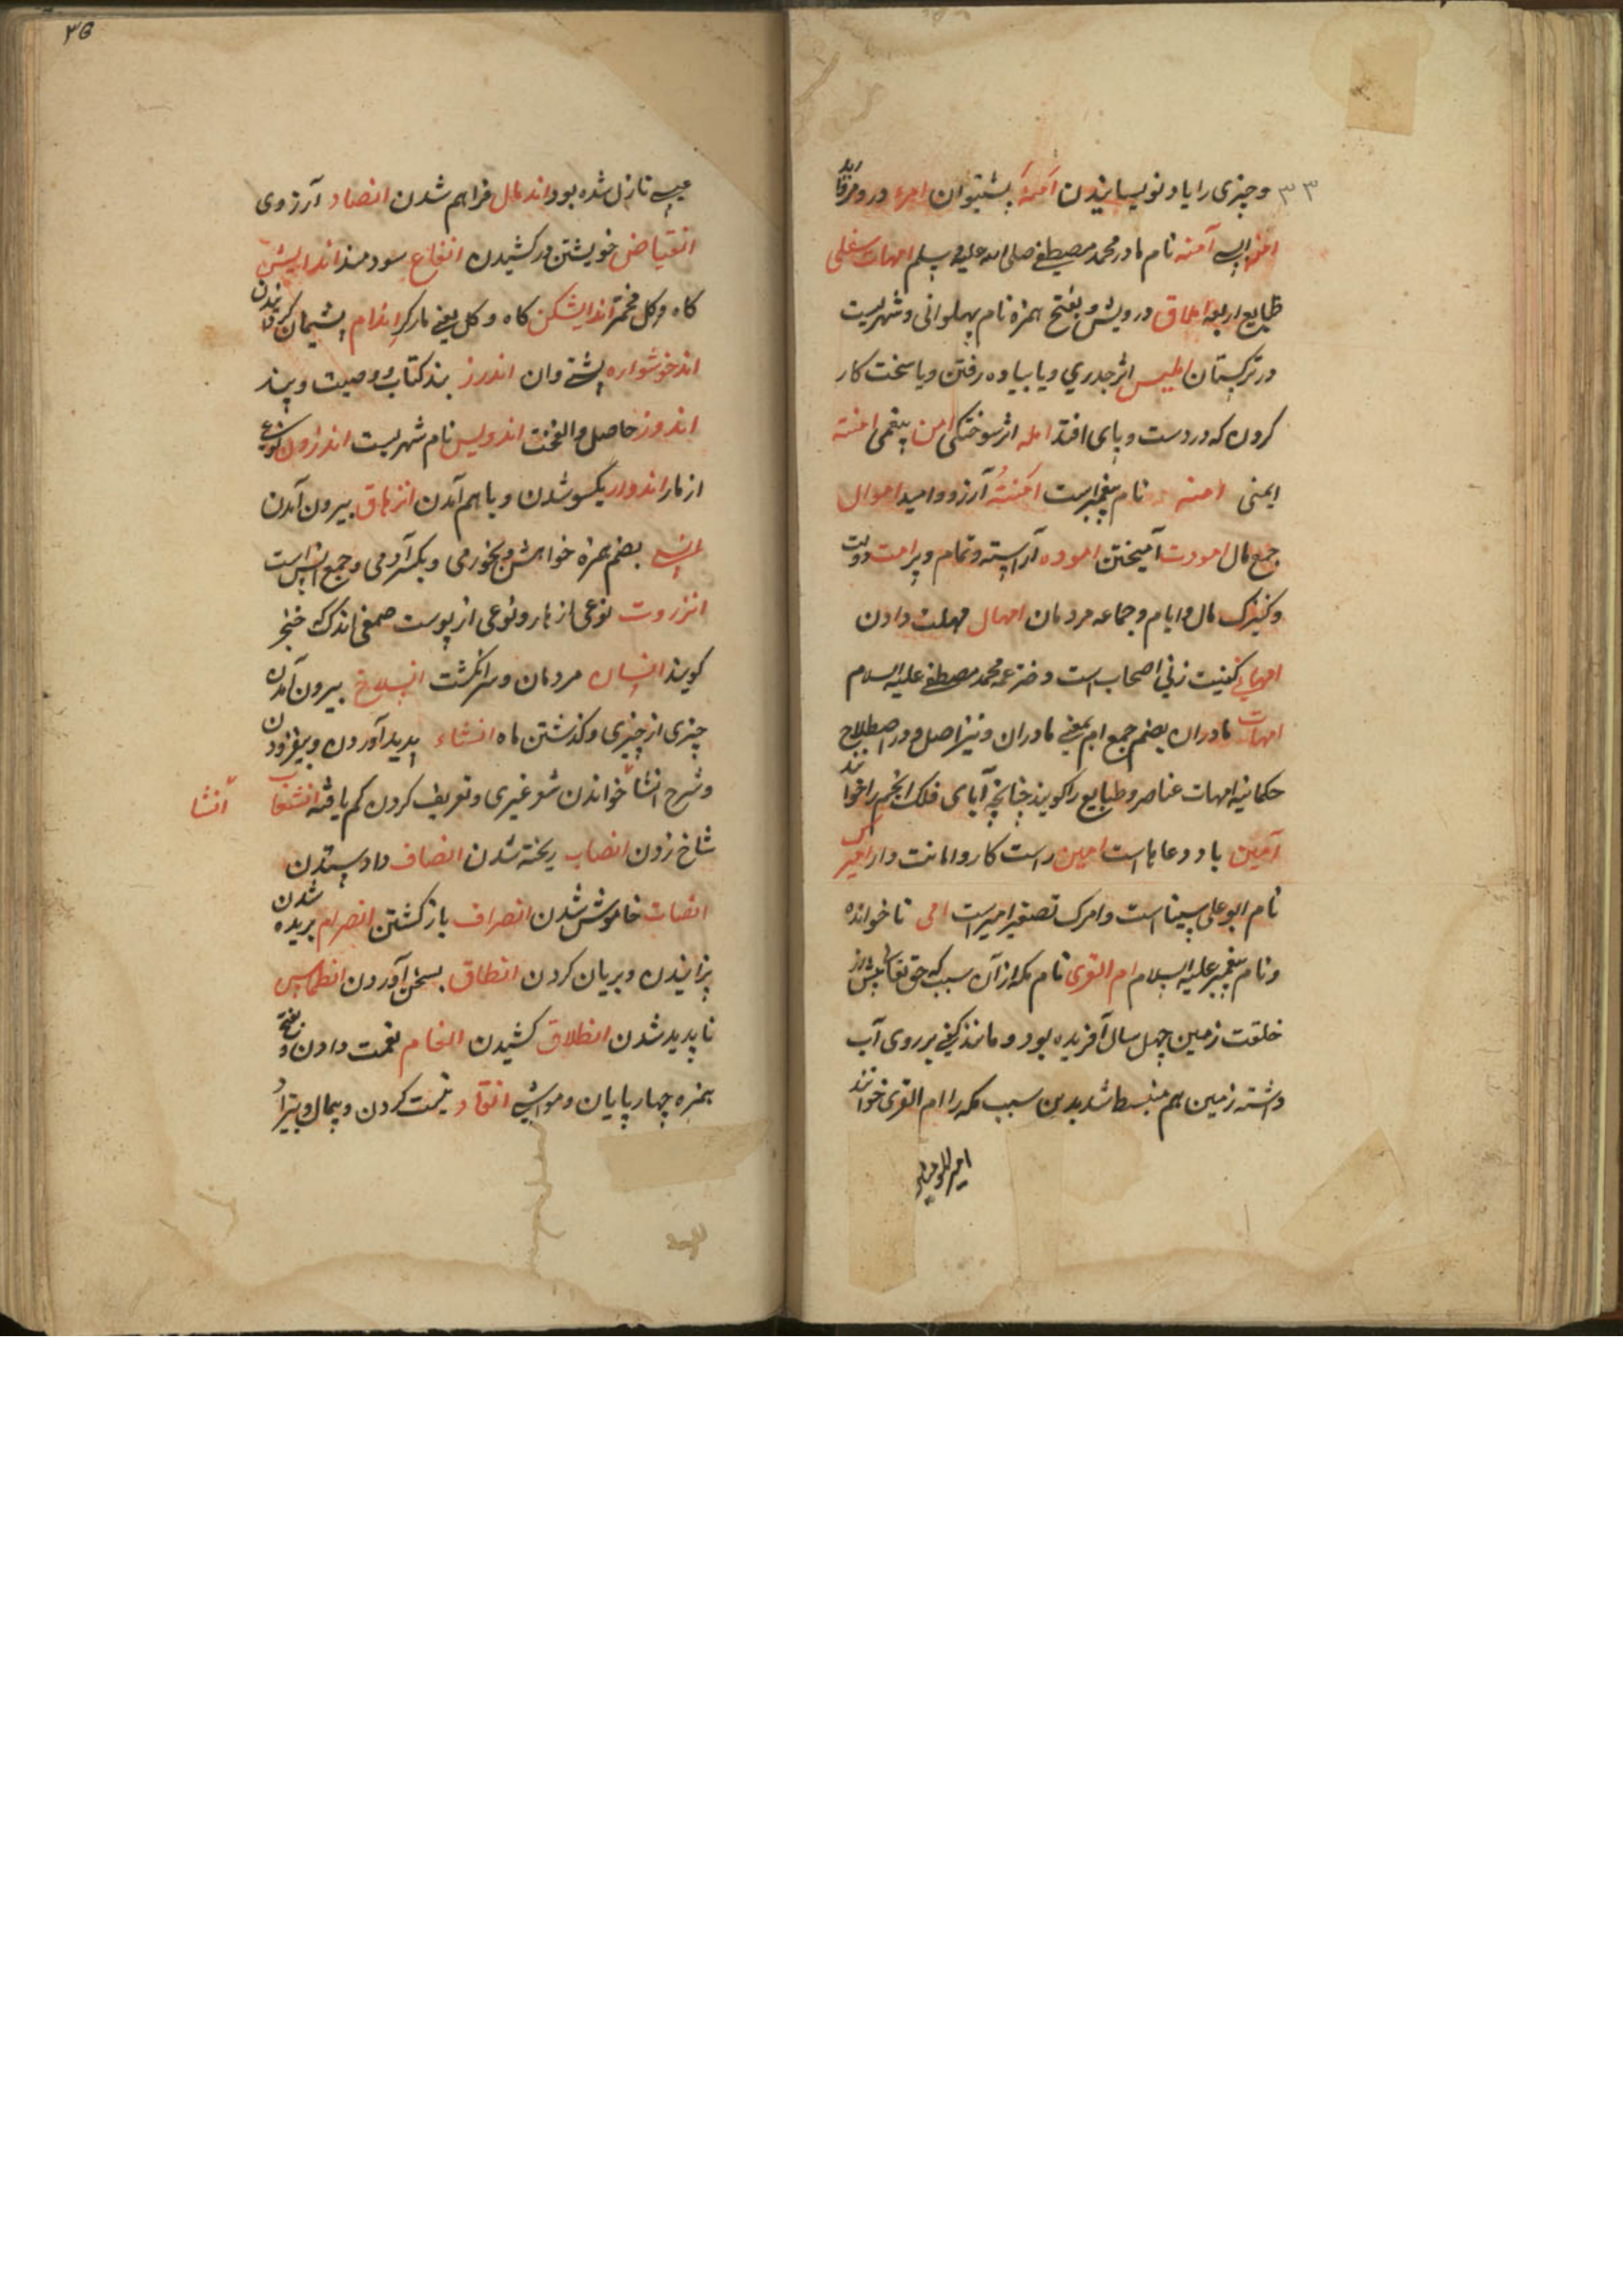 ۳۳ و چیزی را یاد نویسانیدن آمنهٔ پشتیوان امرء درو مرفا
آمنه نام مادر محمد مصطفی صلی الله علیه و سلم امهات سفلی
طبایع اربعه املاق درویش و بفتح همزه نام پهلوانی و شهریست
در ترکستان املیس اثر جدری و یا پیاده رفتن و یا سخت کار
کردن که در دست و پای افتد امله اثر سوختکی امن بیغمی امنته
ایمنی امنه نام پیغمبر است امنیته آرزو و امید اموال
جمع مال امودت آمیختن اموده آراسته و تمام و پر امت دولت
و کنیزک مال و ایام و جماعه مردمان امهال مهلت دادن
امهانی کنیت زنی اصحاب است دختر عمه محمد مصطفی علیه السلام
امهات مادران بضم جمع ام یعنی مادران و نیز اصل و در اصطلاح
حکمانیه امهات عناصر و طبایع را کویند چنانچه آبای فلک انجم را خوانند
آمین باد دعا یا است امین راست کار و امانت دار امیرس
نام ابو علی سینا است و امرک تصغیر امیر است امی نا خوانده
و نام پیغمبر علیه السلام ام القری نام مکه از آن سبب که حق تعالی پیش از
خلقت زمین چهل سال آفریده بود و مانند کفی بر روی آب
داشته زمین هم منبسط شد بدین سبب مکه را ام القری خوانند
امیر المومنین
۳۵
عیسی نازل شده بود اندمال فراهم شدن انصاد آرزوی
انقیاض خویشتن در کشیدن انفاع سودمند اندایش
کاه و کل مخمر اندایشکن کاه و کل یعنی مارکر اندام پشیمان کردانیدن
اندخوشواره پشتی وان اندرز بند کتاب و وصیت و پند
اندوز حاصل و الفخت اندویس نام شهریست اندرون نوعی
از مار اندوار یکسو شدن و باهم آمدن انزهاق بیرون آمدن
انس بضم همزه خواهش و بخوری و بکسر آدمی و جمع انس است
انزروت نوعی از مار و نوعی از پوست صمغی اندک خنجر
کویند انسان مردمان و سر انکشت انسلاخ بیرون آمدن
چیزی از چیزی و کذشتن ماه انشاء پدید آوردن و بیفزودن
و شرح انشا خواندن شعر غیری و تعریف کردن کم یافته انشعاب
انشا
شاخ زدن انصاب ریخته شدن انصاف داد ستدن
انصات خاموش شدن انصراف باز کشتن انصرام بریده شدن
پزانیدن و بریان کردن انطاق بسخن آوردن انطماس
ناپدید شدن انطلاق کشیدن انعام نعمت دادن و بفتح
همزه چهار پایان و مواشی انقاد قیمت کردن و پیمال و بتیراد